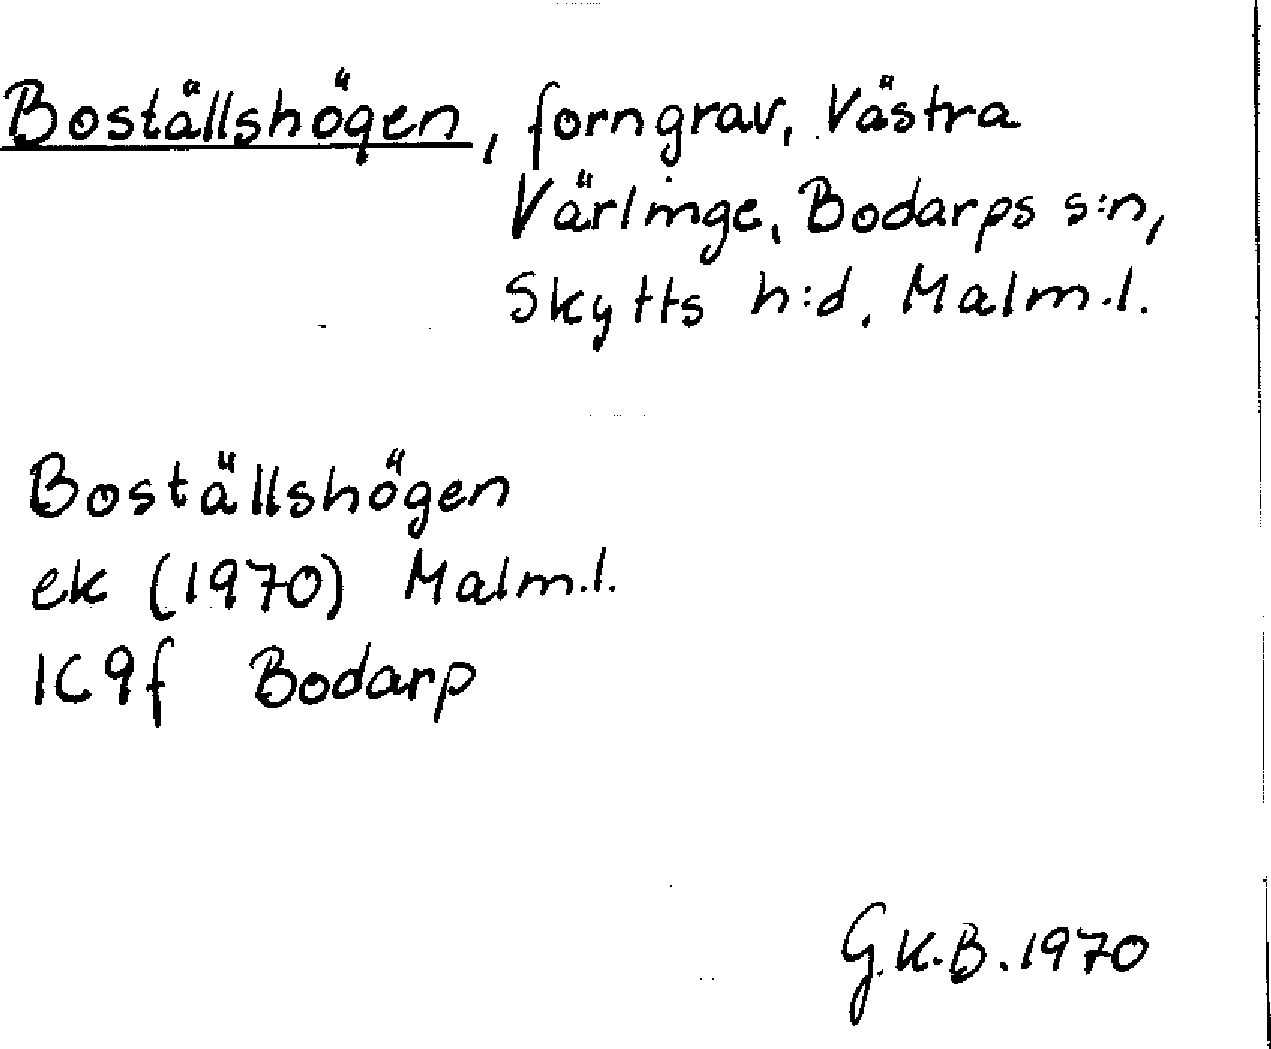 Boställshögen, forngrav, Västra
Värlinge, Bodarps s:n,
Skytts h:d, Malm.l.
Boställshögen
ek (1970) Malm.l.
1C9f Bodarp
G.K.B. 1970